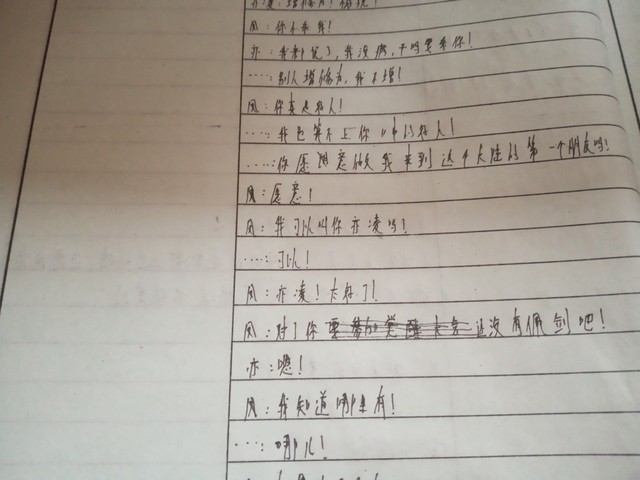 风：你不杀我！
亦：我都说了，我没病，干吗要杀你！
……：别人增修为，我不增！
风：你真是好人！
……：我也算不上你口中的好人！
……：你愿意做我来到这个大陆的第一个朋友吗！
风：愿意！
风：我可以叫你亦凌吗！
……：可以！
风：亦凌！太好了！
风：对了你还没有佩剑吧！
亦：嗯！
风：我知道哪里有！
……：哪儿！